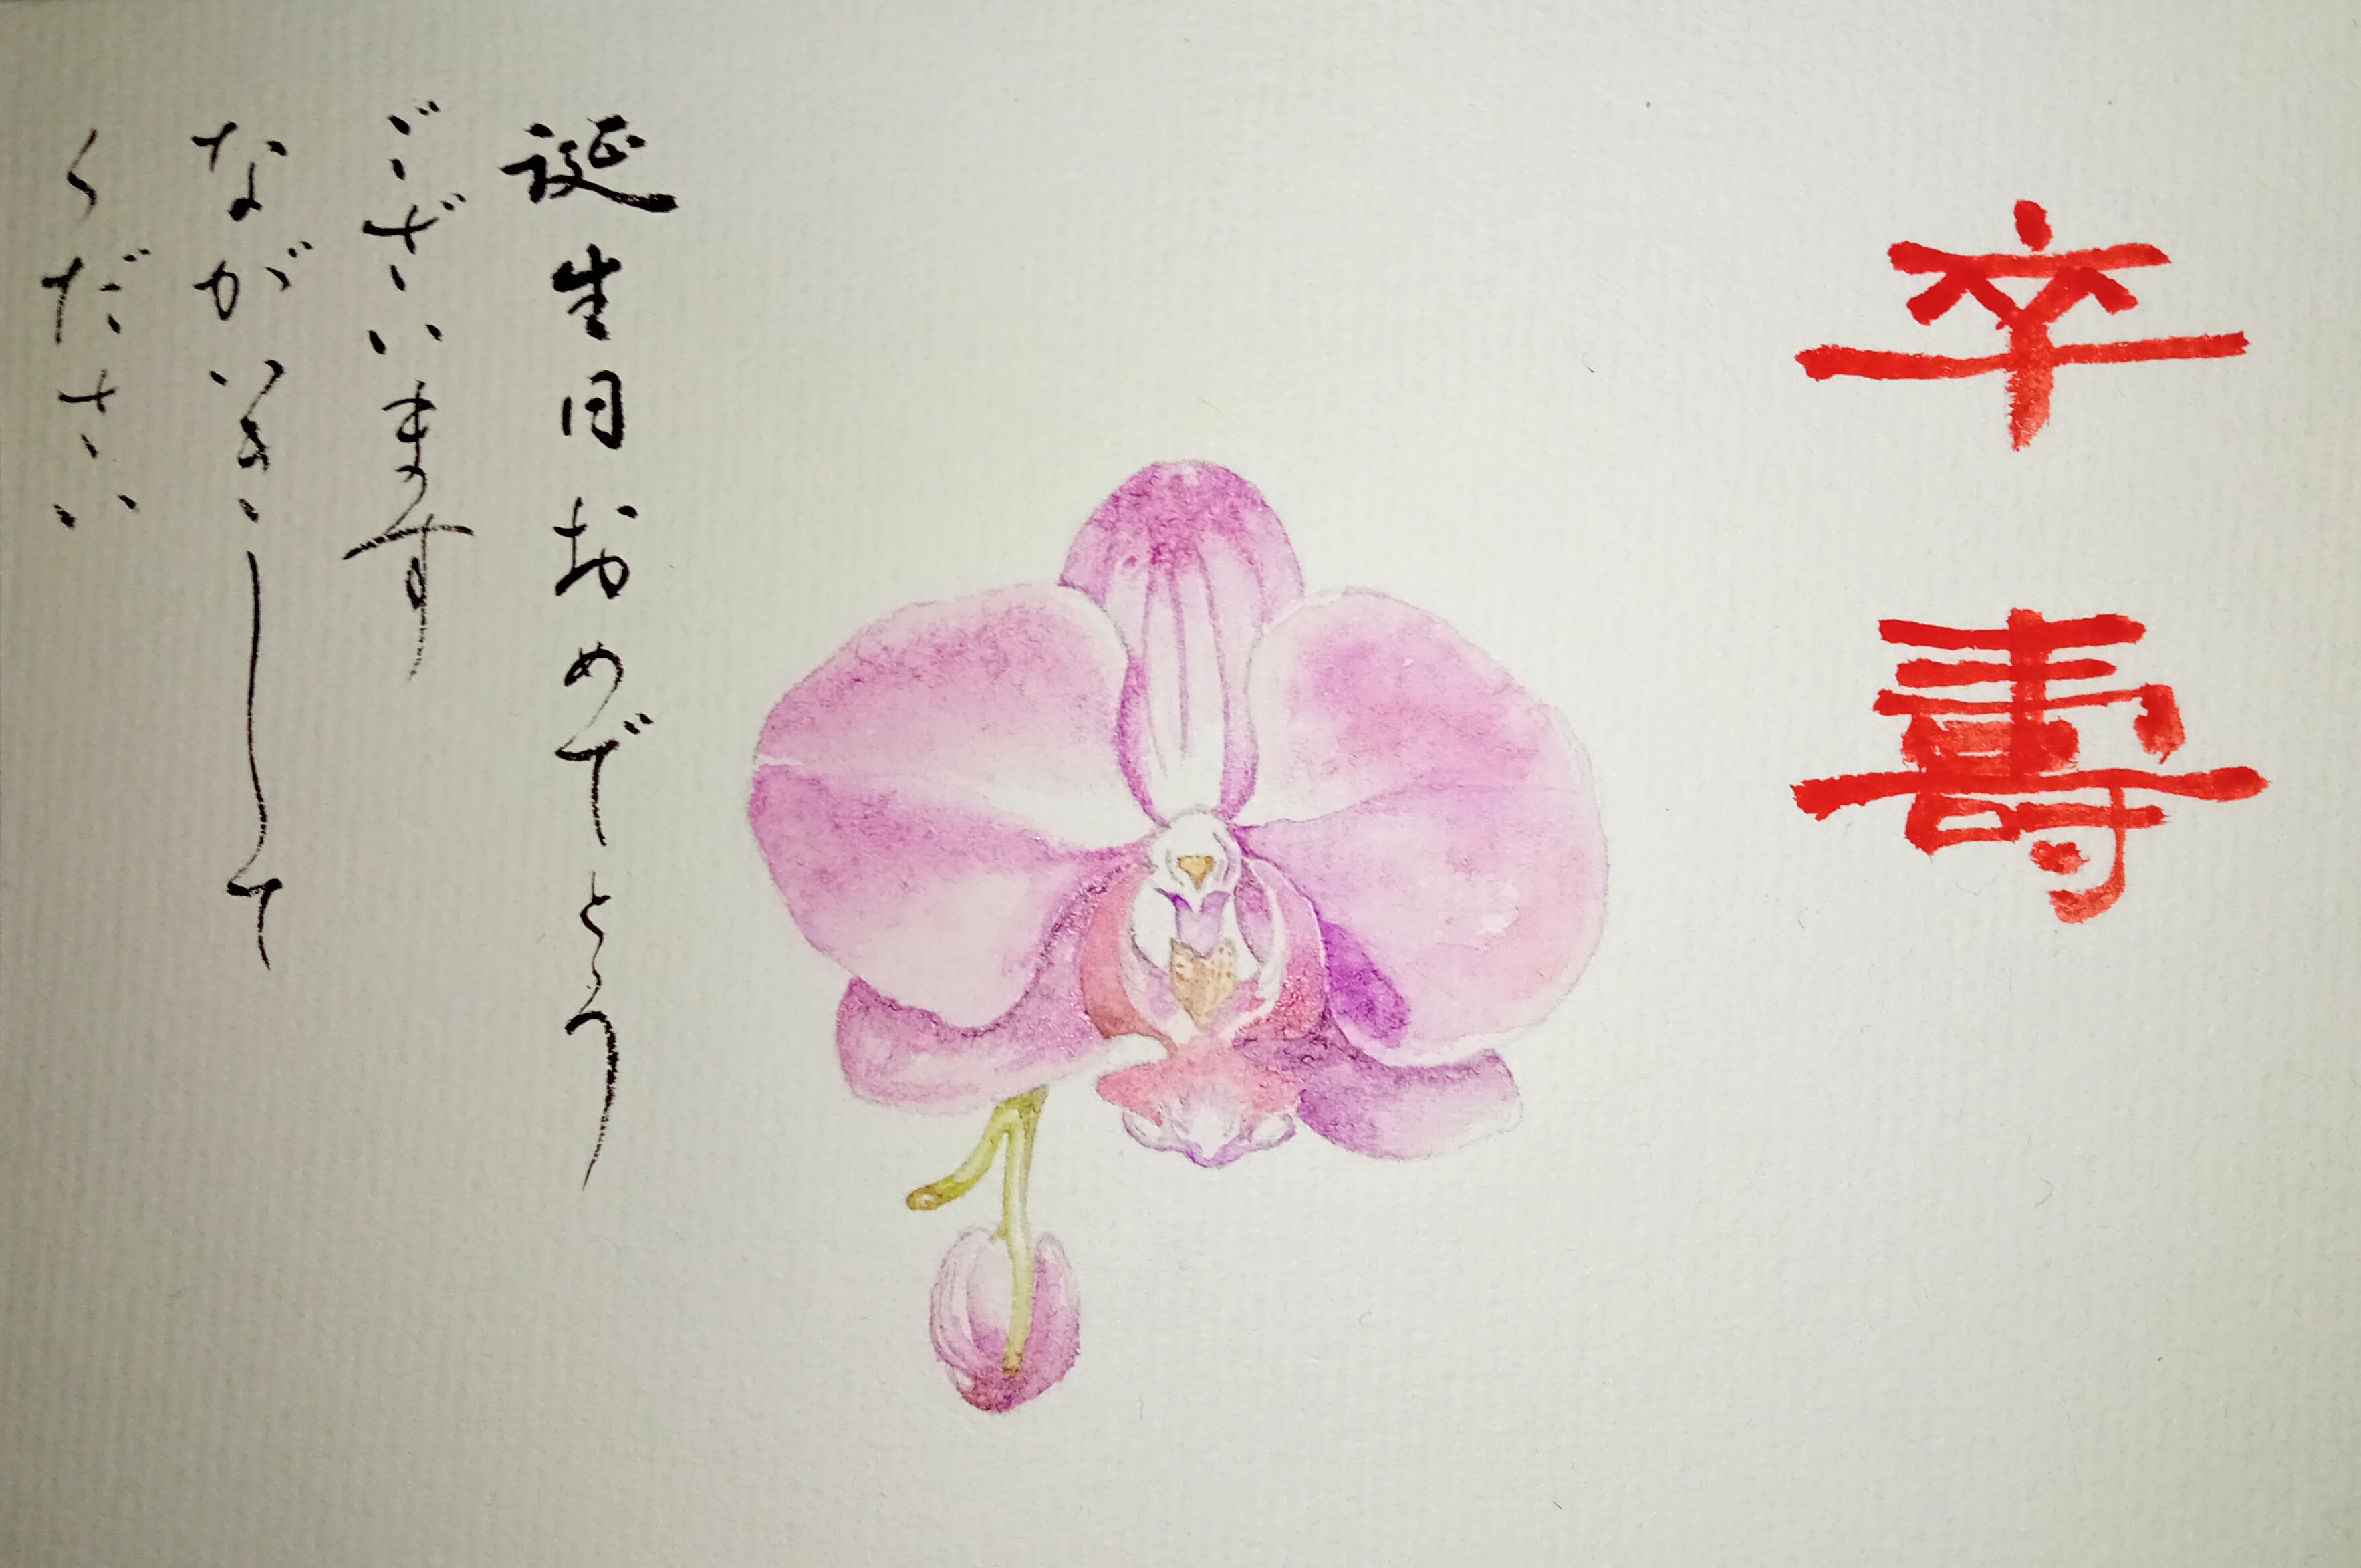 卒壽
誕生日おめでとう
ございます
ながいきして
ください